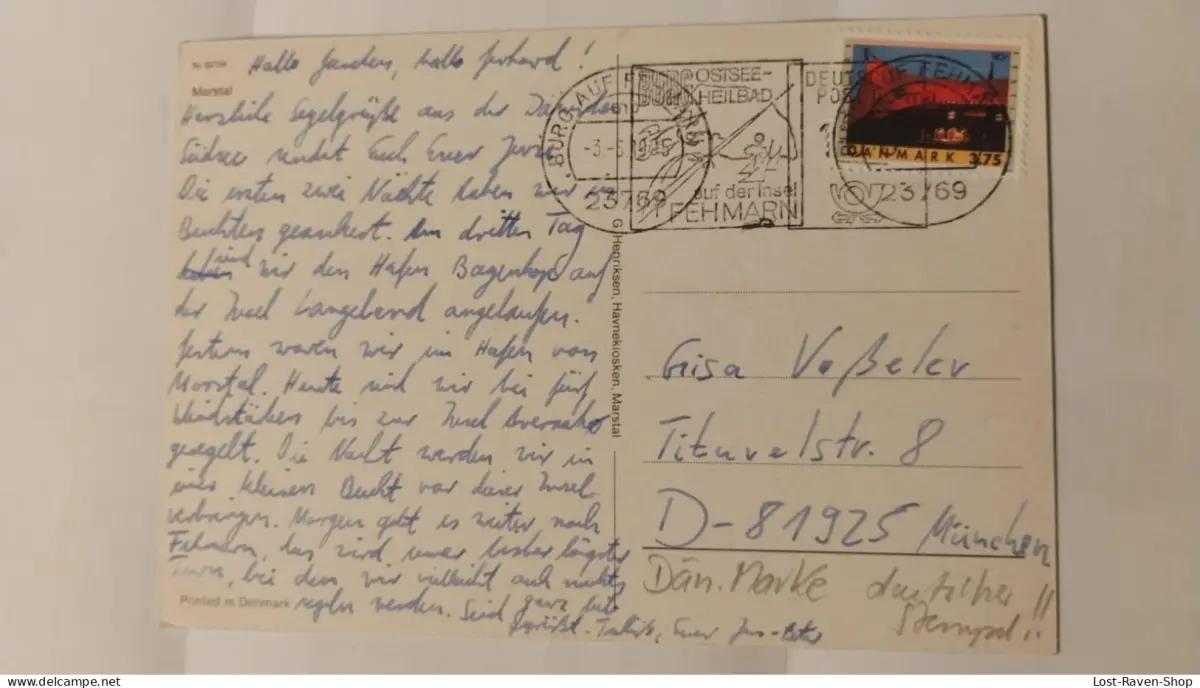 Nr. 
Marstal
Hallo , hallo !
Herzliche Segelgrüße aus der Dänischen
Südsee sendet Euch Euer
Die ersten zwei Nächte haben wir in
Buchten geankert. Am dritten Tag
sind wir den Hafen Bagenkop auf
der Insel Langeland angelaufen.
Gestern waren wir im Hafen von
Marstal. Heute sind wir bei fünf
Windstärken bis zur Insel
gesegelt. Die Nacht werden wir in
einer kleinen Bucht vor dieser Insel
verbringen. Morgen geht es weiter nach
Fehmarn, das wird unser bisher längster
Turn, bei dem wir vielleicht auch nachts
segeln werden. Seid ganz lieb
gegrüßt. Euer
Printed in Denmark
G. Henriksen, Havnekiosken, Marstal
BURG AUF FEHMARN
23769
BURG OSTSEE-
HEILBAD
auf der Insel
FEHMARN
DEUTSCHE
POST
FEHMARN
23769
DANMARK 3.75
Gisa Voßeler
Titurelstr. 8
D-81925 München
Dän. Marke deutscher
Stempel!!
Lost-Raven-Shop